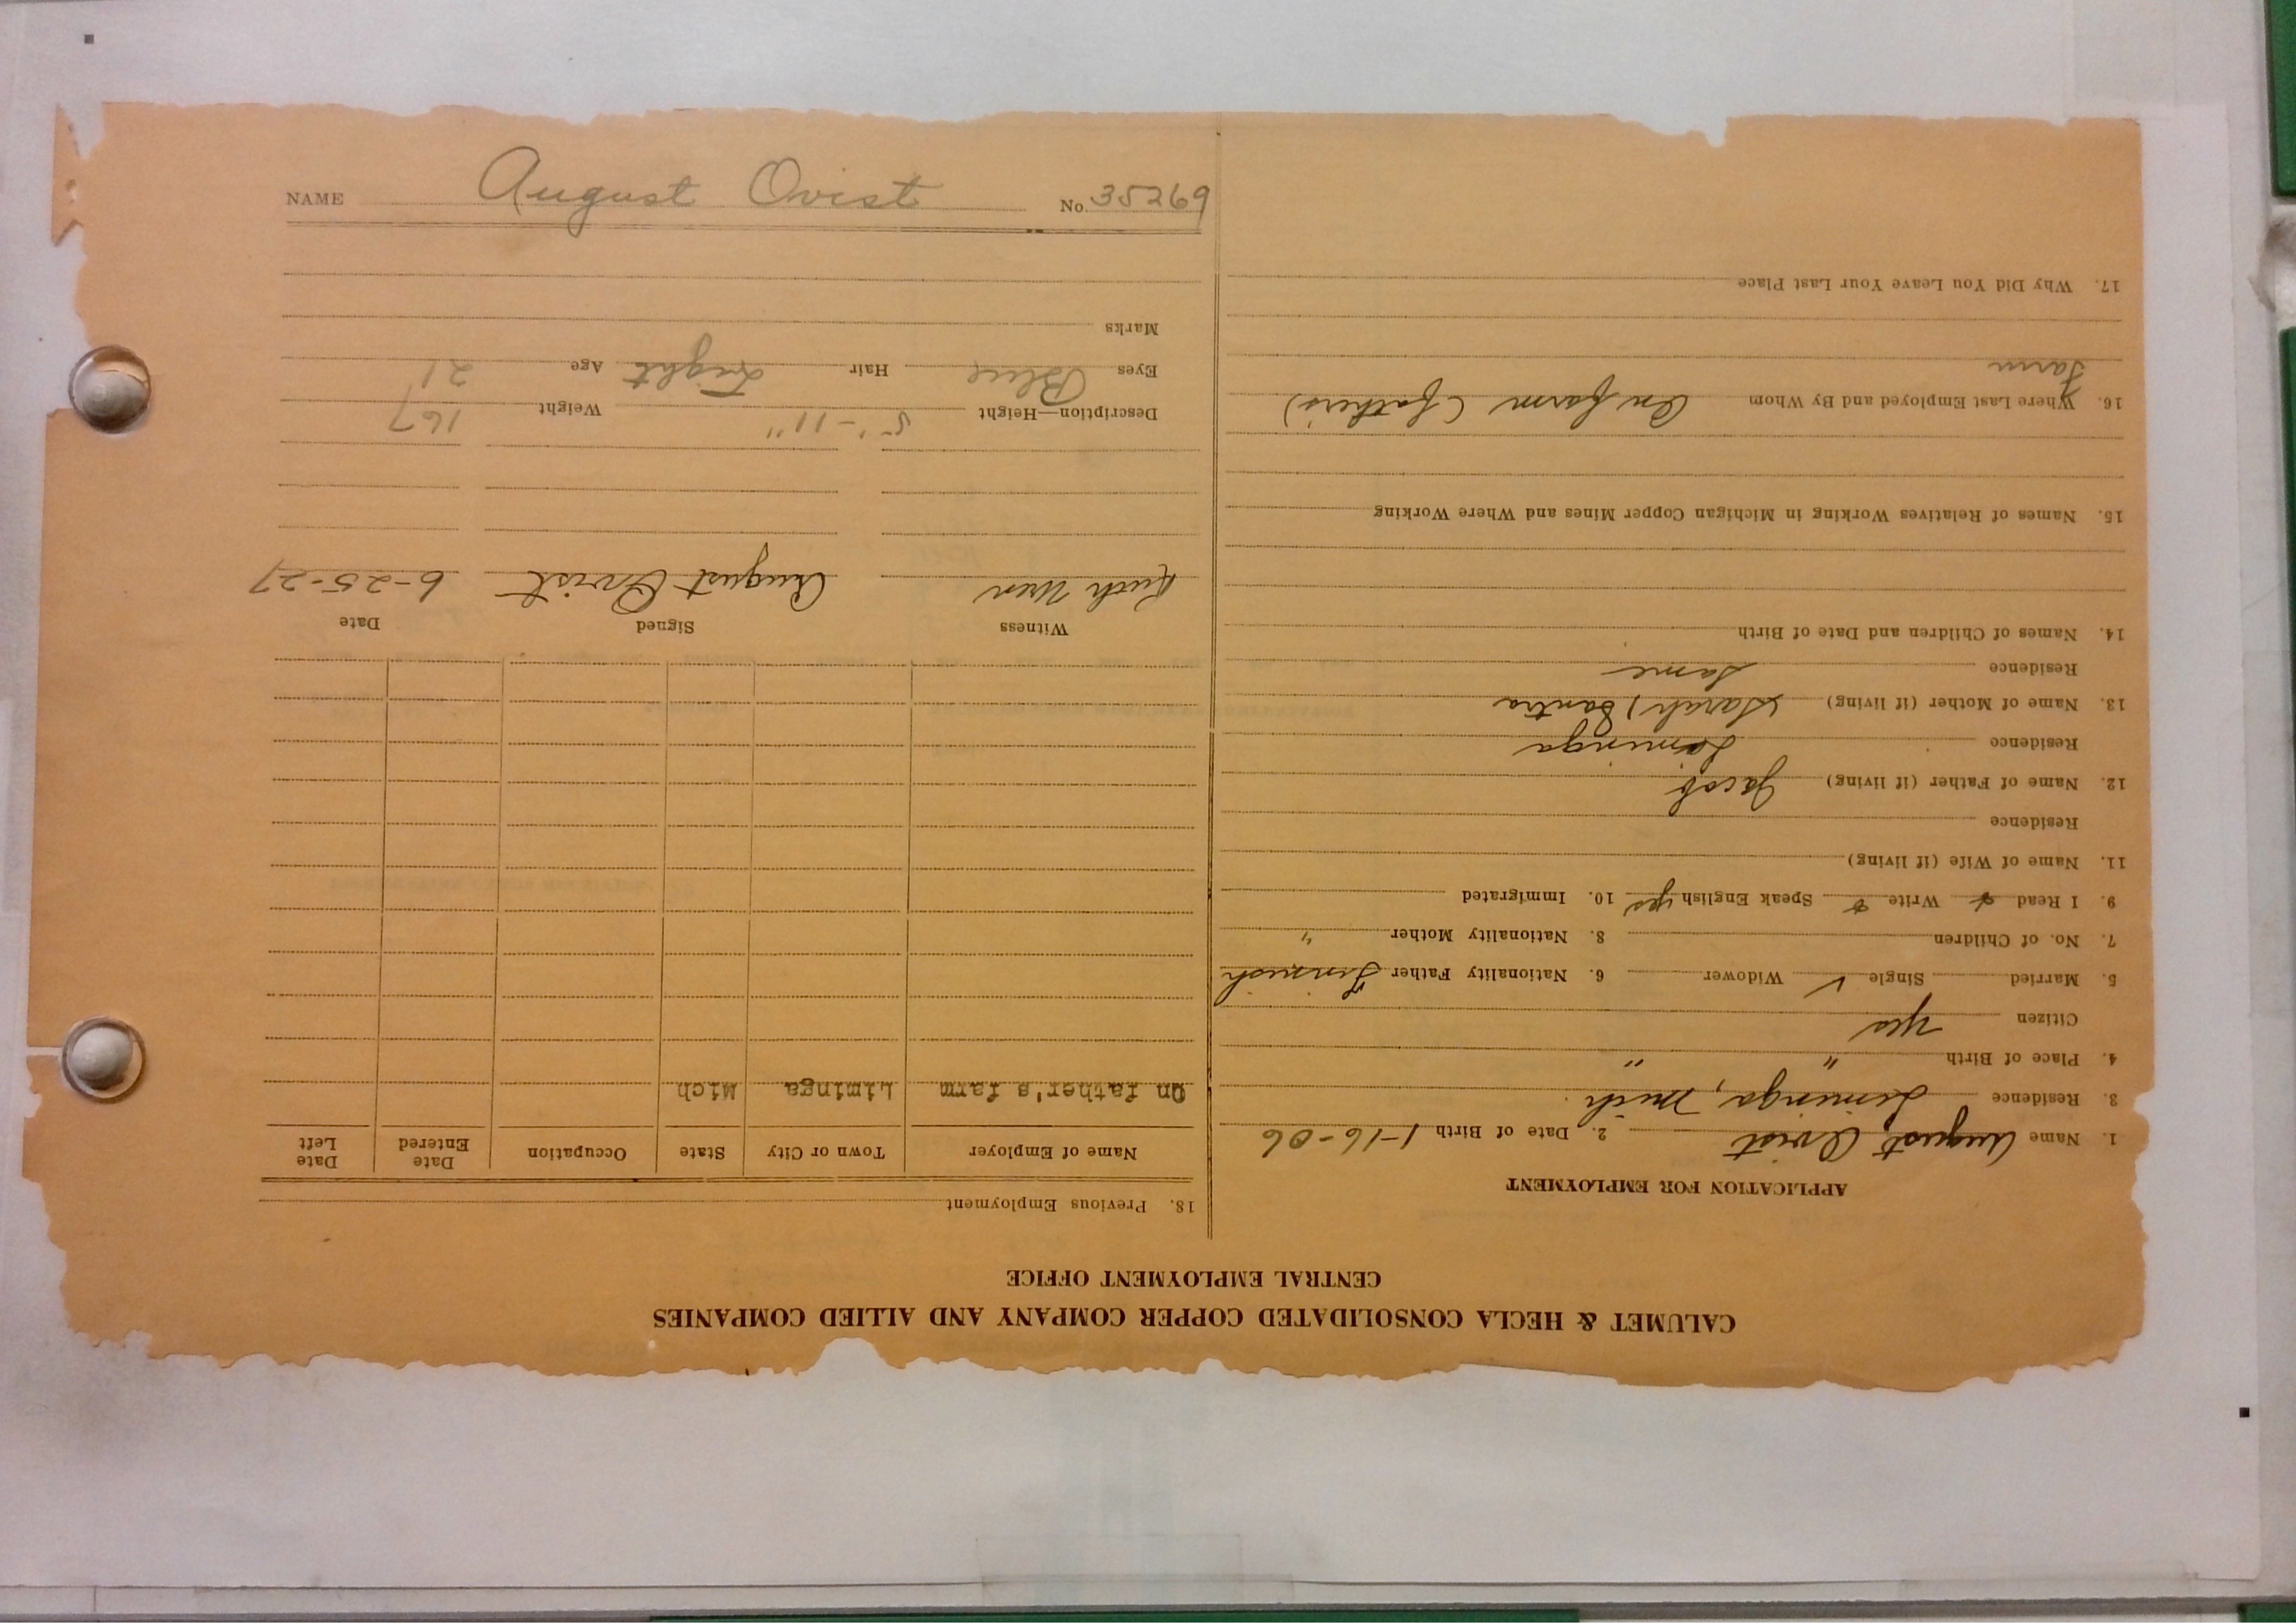 NAME August Ovist No. 35269
CALUMET & HECLA CONSOLIDATED COPPER COMPANY AND ALLIED COMPANIES
CENTRAL EMPLOYMENT OFFICE
APPLICATION FOR EMPLOYMENT
1. Name August Ovist 2. Date of Birth 1-16-06
3. Residence Liminga, Mich.
4. Place of Birth " "
Citizen yes
5. Married Single ✓ Widower 6. Nationality Father Finnish
7. No. of Children 8. Nationality Mother "
9. I Read Write Speak English yes 10. Immigrated
11. Name of Wife (if living)
Residence
12. Name of Father (if living) Jacob
Residence Liminga
13. Name of Mother (if living) Sarah
Residence Same
14. Names of Children and Date of Birth
15. Names of Relatives Working in Michigan Copper Mines and Where Working
16. Where Last Employed and By Whom On farm (father's)
Farm
17. Why Did You Leave Your Last Place
18. Previous Employment
Name of Employer Town or City State Occupation Date Entered Date Left
On father's farm Liminga Mich
Witness Signed Date
Ruth August Ovist 6-25-27
Description—Height 5'-11" Weight 167
Eyes Blue Hair Light Age 21
Marks